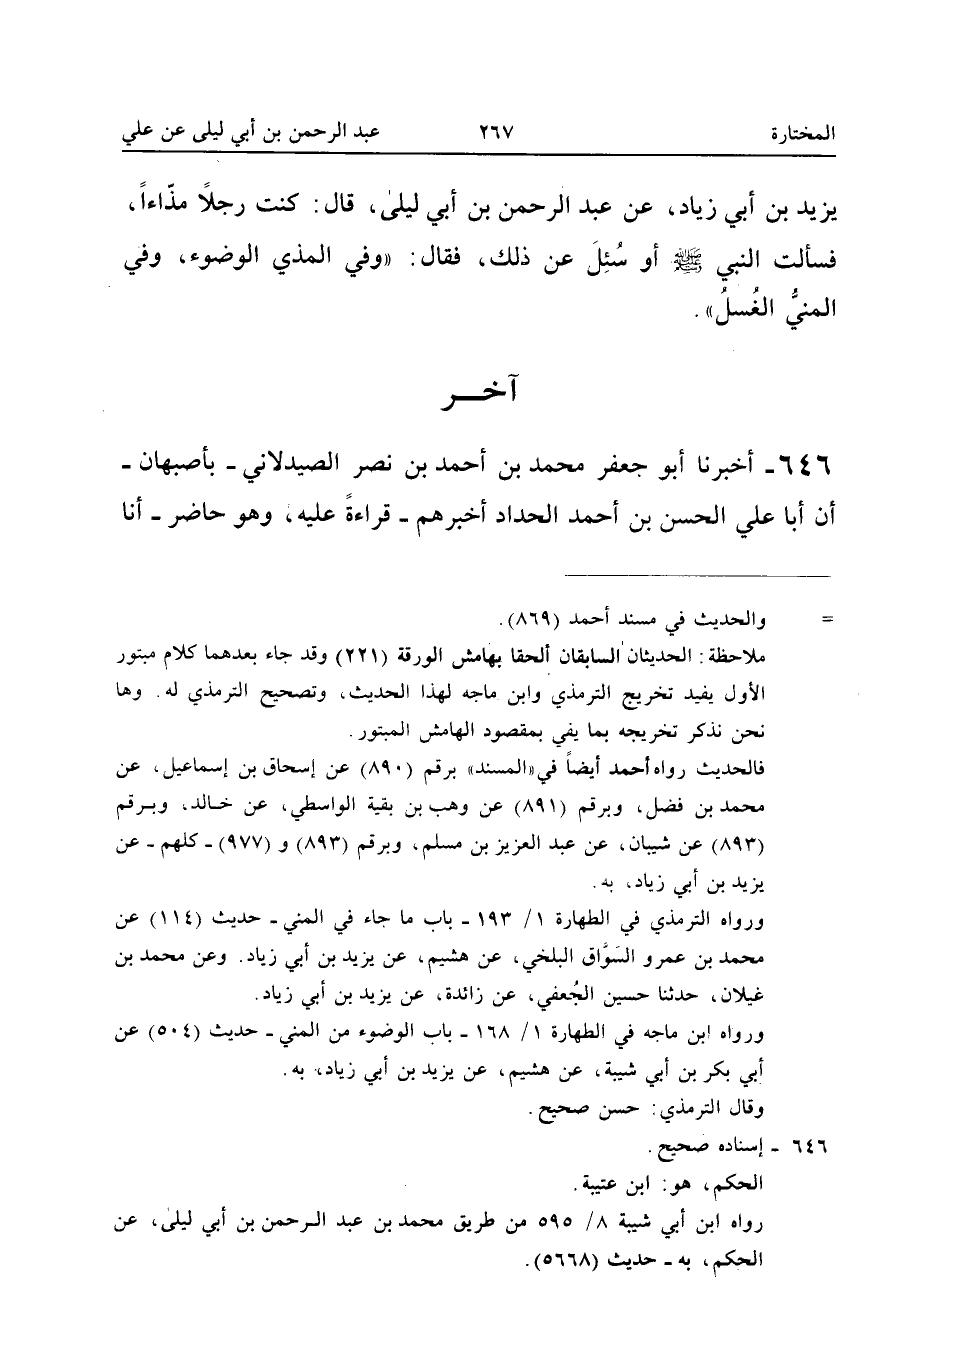 المختارة ٢٦٧ عبد الرحمن بن أبي ليلى عن علي
يزيد بن أبي زياد، عن عبد الرحمن بن أبي ليلىٰ، قال: كنت رجلاً مذّاءاً،
فسألت النبي ﷺ أو سُئِلَ عن ذلك، فقال: «وفي المذي الوضوء، وفي
المنيُّ الغُسلُ».
آخـــر
٦٤٦ـ أخبرنا أبو جعفر محمد بن أحمد بن نصر الصيدلاني ـ بأصبهان ـ
أن أبا علي الحسن بن أحمد الحداد أخبرهم ـ قراءةً عليه، وهو حاضر ـ أنا
= والحديث في مسند أحمد (٨٦٩).
ملاحظة: الحديثان السابقان ألحقا بهامش الورقة (٢٢١) وقد جاء بعدهما كلام مبتور
الأول يفيد تخريج الترمذي وابن ماجه لهذا الحديث، وتصحيح الترمذي له. وها
نحن نذكر تخريجه بما يفي بمقصود الهامش المبتور.
فالحديث رواه أحمد أيضاً في «المسند» برقم (٨٩٠) عن إسحاق بن إسماعيل، عن
محمد بن فضل، وبرقم (٨٩١) عن وهب بن بقية الواسطي، عن خـالد، وبـرقم
(٨٩٣) عن شيبان، عن عبد العزيز بن مسلم، وبرقم (٨٩٣) و (٩٧٧) ـ كلهم ـ عن
يزيد بن أبي زياد، به.
ورواه الترمذي في الطهارة ١/ ١٩٣ ـ باب ما جاء في المني ـ حديث (١١٤) عن
محمد بن عمرو السَوَّاق البلخي، عن هشيم، عن يزيد بن أبي زياد. وعن محمد بن
غيلان، حدثنا حسين الجُعفي، عن زائدة، عن يزيد بن أبي زياد.
ورواه ابن ماجه في الطهارة ١/ ١٦٨ ـ باب الوضوء من المني ـ حديث (٥٠٤) عن
أبي بكر بن أبي شيبة، عن هشيم، عن يزيد بن أبي زياد، به.
وقال الترمذي: حسن صحيح.
٦٤٦ ـ إسناده صحيح.
الحكم، هو: ابن عتيبة.
رواه ابن أبي شيبة ٨/ ٥٩٥ من طريق محمد بن عبد الرحمن بن أبي ليلىٰ، عن
الحكم، به ـ حديث (٥٦٦٨).